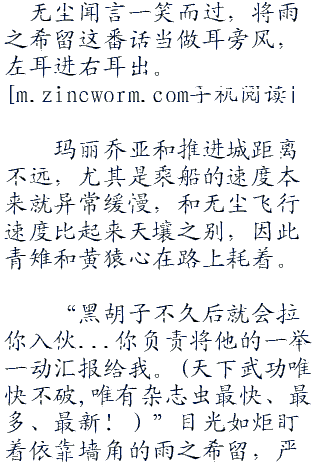 无尘闻言一笑而过，将雨
之希留这番话当做耳旁风，
左耳进右耳出。
[m.zincworm.com手机阅读]
玛丽乔亚和推进城距离
不远，尤其是乘船的速度本
来就异常缓慢，和无尘飞行
速度比起来天壤之别，因此
青雉和黄猿心在路上耗着。
“黑胡子不久后就会拉
你入伙...你负责将他的一举
一动汇报给我。(天下武功唯
快不破,唯有杂志虫最快、最
多、最新！)”目光如炬盯
着依靠墙角的雨之希留，严